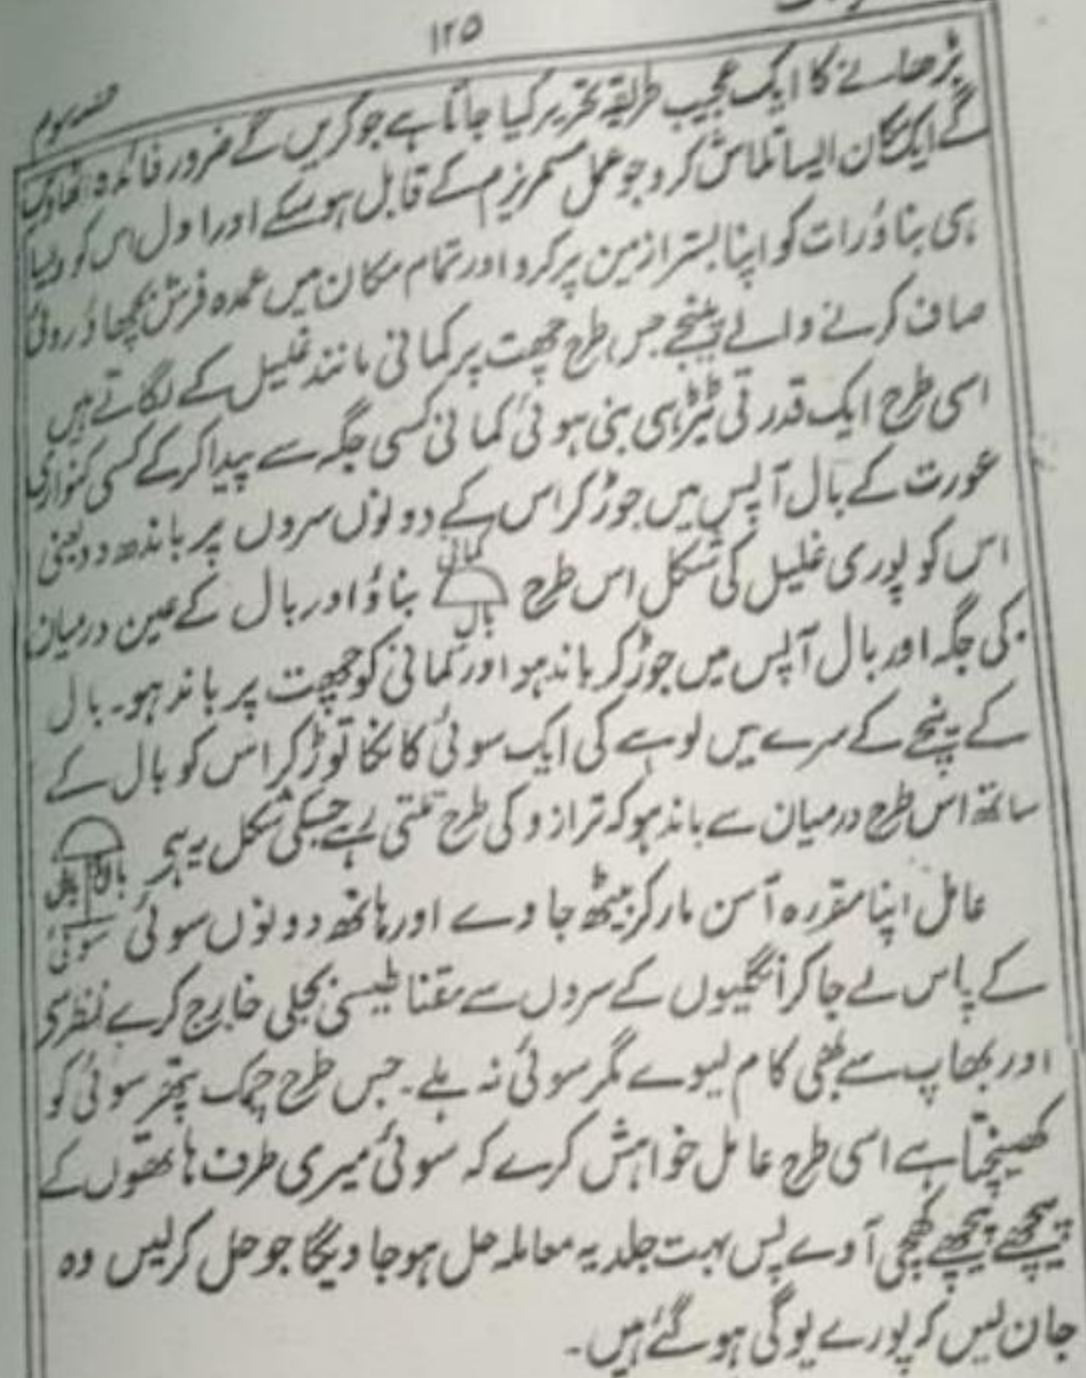 ۱۲۵
حصہ سوم
بڑھانے کا ایک عجیب طریقہ تحریر کیا جاتا ہے جو کریں گے ضرور فائدہ اٹھاویں
گے ایک مکان ایسا تلاش کرو جو عمل مسمریزم کے قابل ہو سکے اور اول اس کو ویسا
ہی بناؤ رات کو اپنا بستر ازمین پر کرو اور تمام مکان میں عمدہ فرش بچھاؤ روئی
صاف کرنے والے پینجے جس طرح چھت پر کمانی مانند غلیل کے لگاتے ہیں
اسی طرح ایک قدرتی ٹیڑہی بنی ہوئی کمانی کسی جگہ سے پیدا کر کے کسی کنواری
عورت کے بال آپس میں جوڑ کر اس کے دونوں سروں پر باندھ دو یعنی
اس کو پوری غلیل کی شکل اس طرح کمانی بال بناؤ اور بال کے عین درمیان
کی جگہ اور بال آپس میں جوڑ کر باندہو اور کمانی کو چھت پر باندہو۔ بال
کے نیچے کے سرے میں لوہے کی ایک سوئی کا نکا توڑ کر اس کو بال کے
ساتھ اس طرح درمیان سے باندہو کہ ترازو کی طرح تلتی رہے جسکی شکل یہ ہے بال
عامل اپنا مقررہ آسن مار کر بیٹھ جاوے اور ہاتھ دونوں سوئی سوئی
کے پاس لے جا کر انگلیوں کے سروں سے مقناطیسی بجلی خارج کرے نظر
اور بھاپ سے بھی کام لیوے مگر سوئی نہ ہلے۔ جس طرح چمک پتھر سوئی کو
کھینچتا ہے اسی طرح عامل خواہش کرے کہ سوئی میری طرف ہاتھوں کے
پیچھے پیچھے کھچی آوے پس بہت جلد یہ معاملہ حل ہو جاویگا جو حل کر لیں وہ
جان لیں کہ پورے یوگی ہو گئے ہیں۔